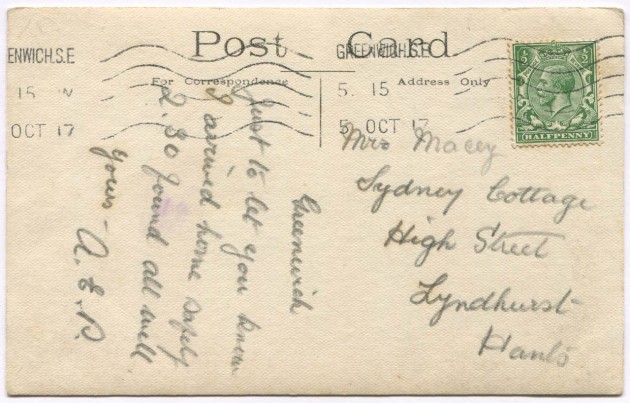 Post Card
For Correspondence
Address Only
ENWICH.S.E
15 W
OCT 17
GREENWICH.S.E
5. 15
5. OCT 17
HALFPENNY
Greenwich
Just to let you know
I arrived home safely
2.30 found all well
Yours - A.E.B.
Mrs Macey
Sydney Cottage
High Street
Lyndhurst
Hants